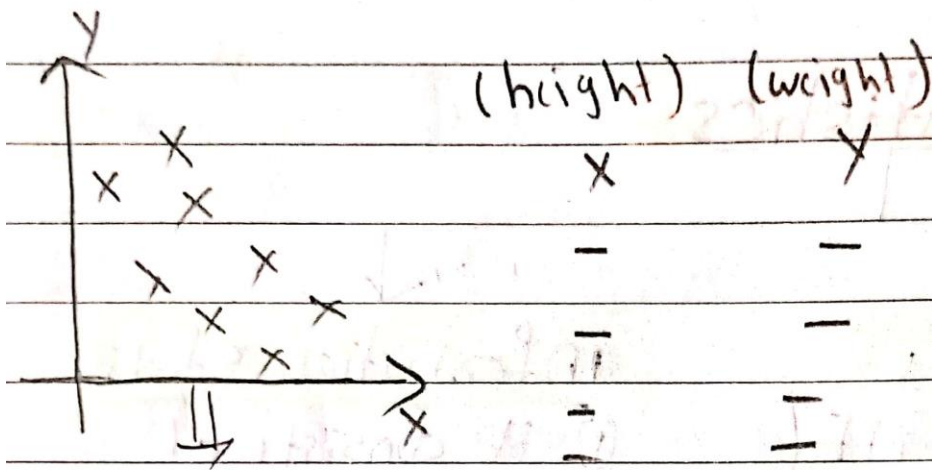 y
(height) (weight)
x y
x